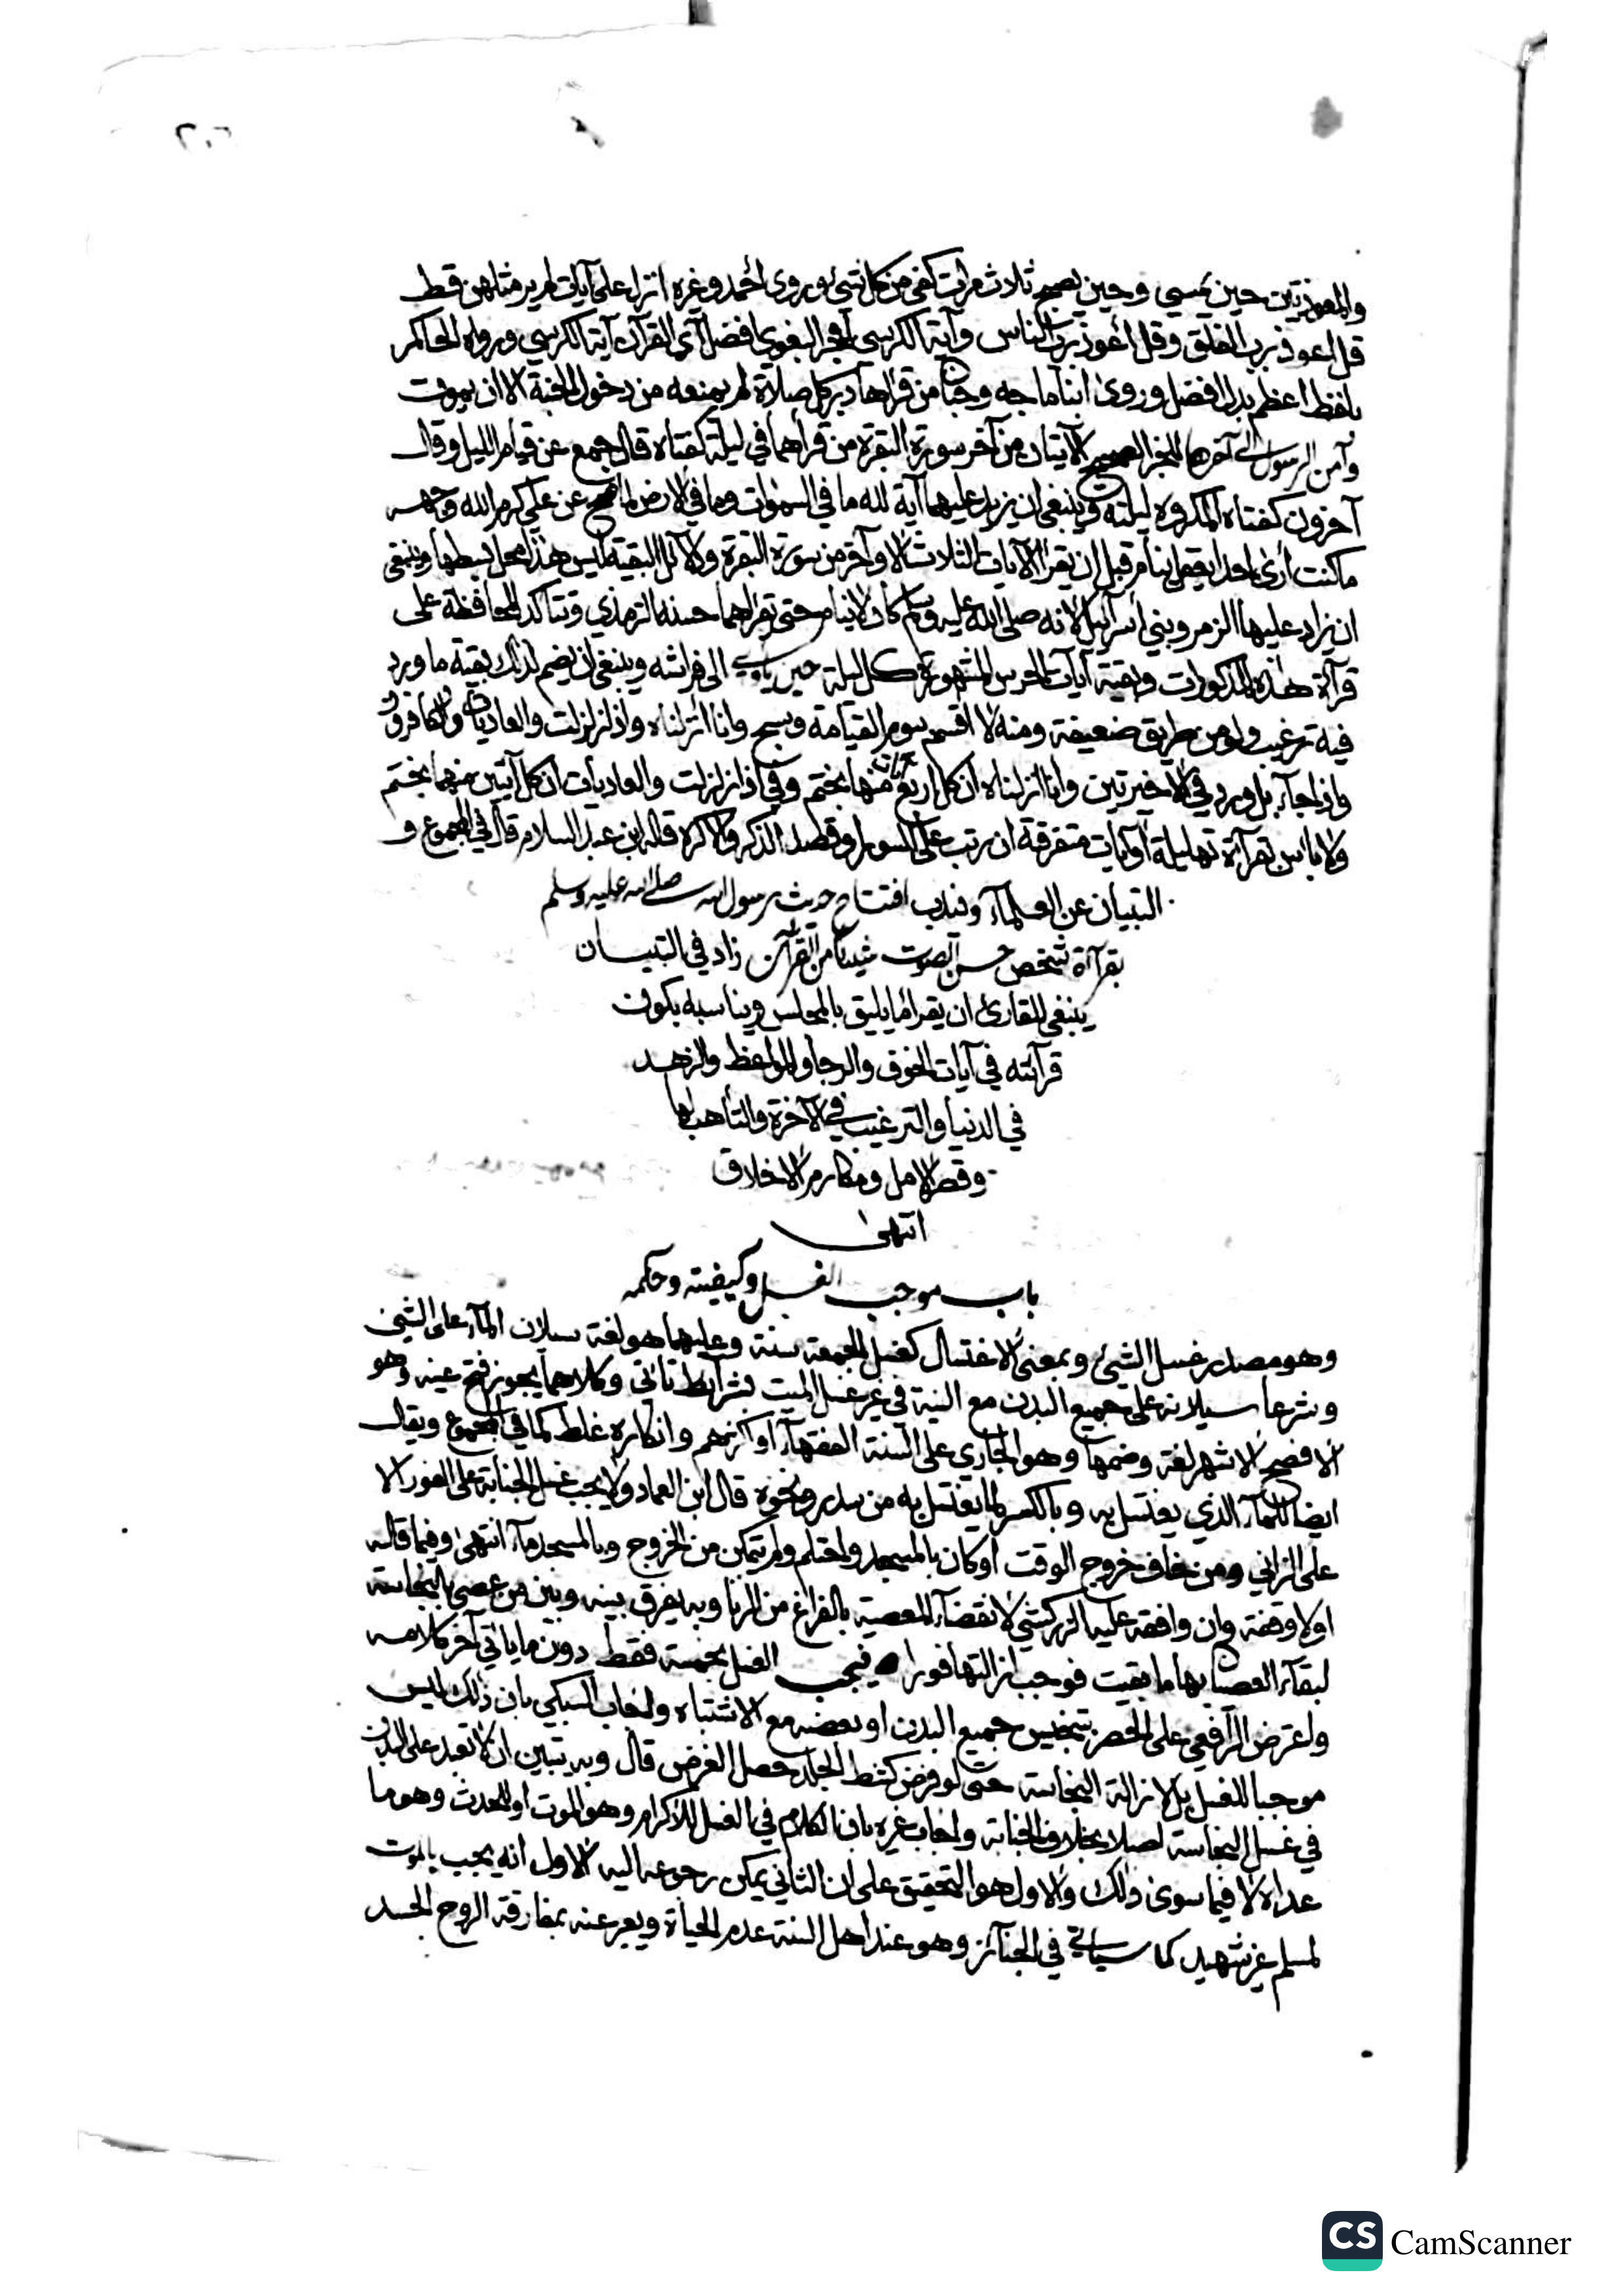 ٢٠٦
والمعوذتين حين يمسي وحين يصبح ثلاث مرات كفي من كل شيء وروى أحمد وغيره انزل علي آيات لم ير مثلهن قط
قل اعوذ برب الفلق وقل أعوذ برب الناس وآية الكرسي البغوي افضل آي القرآن آية الكرسي ورواه الحاكم
بلفظ اعظم بدل افضل وروى ابنا ماجه وحبان من قرأها دبر كل صلاة لم يمنعه من دخول الجنة الا ان يموت
وآمن الرسول الى آخرها للخبر الصحيح الآيتان من آخر سورة البقرة من قرأهما في ليلة كفتاه قال جمع عن قيام الليل وقال
آخرون كفتاه المكروه ليلته وينبغي ان يزيد عليهما آية لله ما في السموات وما في الارض لما صح عن علي كرم الله وجهه
ما كنت أرى احدا يعقل ينام قبل ان يقرأ الآيات الثلاث الاواخر من سورة البقرة ولأدلة البقية ليس هذا محل بسطها وينبغي
ان يزاد عليها الزمر وبني اسرآئيل لانه صلى الله عليه وسلم كان لا ينام حتى يقرأهما حسنه الترمذي وتتاكد المحافظة على
قرآءة هذه المذكورات وبقية آيات الحرس المشهورة كل ليلة حين يأوي الى فراشه وينبغي ان يضم لذلك بقية ما ورد
فيه ترغيب ولو من طريق ضعيفة ومنه لا اقسم بيوم القيامة وسبح وانا أنزلناه واذا زلزلت والعاديات والكافرون
واذا جآء بل ورد في الاخيرتين وانا انزلناه ان كل اربع مرات منها بختم وفي اذا زلزلت والعاديات ان كل آيتين منهما بختم
ولا باس بقرآءة تهليلة أو آيات متفرقة ان رتب على السور او قصد الذكر والا كره قاله ابن عبد السلام قال في المجموع و
التبيان عن العلمآء ويندب افتتاح حديث رسول الله صلى الله عليه وسلم
بقرآءة شخص حسن الصوت شيئا من القرآن زاد في التبيان
ينبغي للقارئ ان يقرأ ما يليق بالمجلس ويناسبه بكون
قرآئته في آيات الخوف والرجا والمواعظ والزهد
في الدنيا والترغيب في الآخرة والتأهب لها
وقصر الامل ومكارم الاخلاق
انتهى
باب موجب الغسل وكيفيته وحكمه
وهو مصدر غسل الشيء وبمعنى الاغتسال كغسل الجمعة سنة وعليهما هو لغة سيلان المآء على الشيء
وشرعا سيلانه على جميع البدن مع النية في غير غسل الميت بشرآيط تاتي وكلاهما يجوز فتح غينه وهو
الافصح الاشهر لغة وضمها وهو الجاري على السنة الفقهآء او اكثرهم وانكاره غلط كما في المجموع ويقال
ايضا للمآء الذي يغتسل به وبالكسر لما يغتسل به من سدر ونحوه قال ابن العماد ولا يجب غسل الجنابة على الفور الا
على الزاني ومن خاف خروج الوقت او كان بالمسجد واحتلم ولم يتمكن من الخروج وبالمسجد مآء انتهى وفيما قاله
اولا وقفة وان وافقه عليه الزركشي لانقضآء المعصية بالفراغ من الزنا وبه يفرق بينه وبين من عصى بالنجاسة
لبقآء العصيان بها ما بقيت فوجب ازالتها فورا فيجب الغسل بخمسة فقط دون ما ياتي آخر كلامه
واعترض الرآفعي على الحصر بتنجيس جميع البدن او بعضه مع الاشتباه واجاب السبكي بان ذلك ليس
موجبا للغسل بل لازالة النجاسة حتى لو فرض كشط الجلد حصل الغرض قال وبه يتبين ان لا تعبد على البدن
في غسل النجاسة اصلا بخلاف الجنابة واجاب غيره بان الكلام في الغسل للاكرام وهو الموت او للحدث وهو ما
عداه لا فيما سوى ذلك والاول هو التحقيق على ان الثاني يمكن رجوعه اليه الاول أنه يجب بالموت
لمسلم غير شهيد كما سياتي في الجنآئز وهو عند اهل السنة عدم الحياة ويعبر عنه بمفارقة الروح الجسد
CS CamScanner